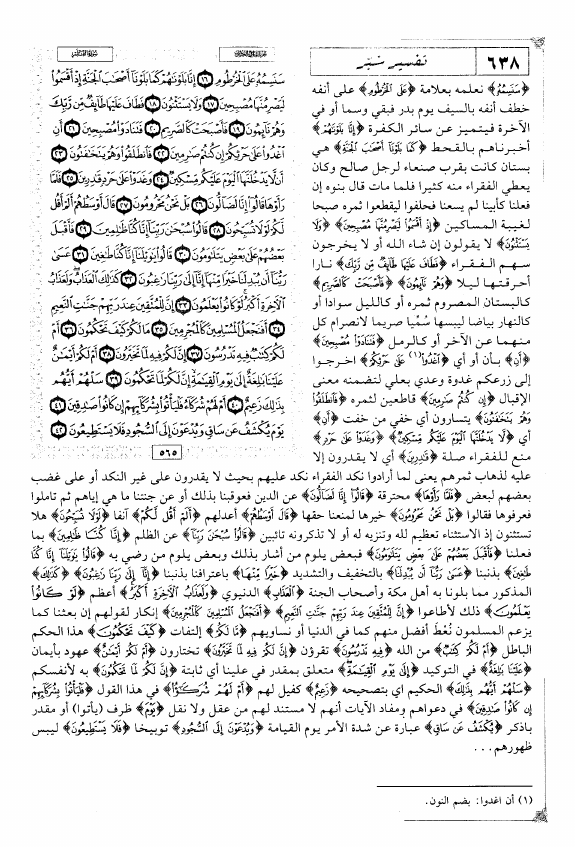 ٦٣٨
تفسير شبر
﴿سَنَسِمُهُ﴾ نعلمه بعلامة ﴿عَلَى الْخُرْطُومِ﴾ على أنفه
خطف أنفه بالسيف يوم بدر فبقي وسما أو في
الآخرة فيتميز عن سائر الكفرة ﴿إِنَّا بَلَوْنَاهُمْ﴾
أخبرناهم بالقحط ﴿كَمَا بَلَوْنَا أَصْحَابَ الْجَنَّةِ﴾ هي
بستان كانت بقرب صنعاء لرجل صالح وكان
يعطي الفقراء منه كثيرا فلما مات قال بنوه إن
فعلنا كأبينا لم يسعنا فحلفوا ليقطعوا ثمره صبحا
لغيبة المساكين ﴿إِذْ أَقْسَمُوا لَيَصْرِمُنَّهَا مُصْبِحِينَ﴾ ﴿وَلَا
يَسْتَثْنُونَ﴾ لا يقولون إن شاء الله أو لا يخرجون
سهم الفقراء ﴿فَطَافَ عَلَيْهَا طَائِفٌ مِّن رَّبِّكَ﴾ نارا
أحرقتها ليلا ﴿وَهُمْ نَائِمُونَ﴾ ﴿فَأَصْبَحَتْ كَالصَّرِيمِ﴾
كالبستان المصروم ثمره أو كالليل سوادا أو
كالنهار بياضا ليبسها سُمّيا صريما لانصرام كل
منهما عن الآخر أو كالرمل ﴿فَتَنَادَوْا مُصْبِحِينَ﴾
﴿أَنِ﴾ بأن أو أي ﴿اغْدُوا(١) عَلَى حَرْثِكُمْ﴾ اخرجوا
إلى زرعكم غدوة وعدي بعلي لتضمنه معنى
الإقبال ﴿إِن كُنتُمْ صَارِمِينَ﴾ قاطعين لثمره ﴿فَانطَلَقُوا
وَهُمْ يَتَخَافَتُونَ﴾ يتسارون أي خفي من خفت ﴿أَن﴾
أي ﴿لَّا يَدْخُلَنَّهَا الْيَوْمَ عَلَيْكُم مِّسْكِينٌ﴾ ﴿وَغَدَوْا عَلَى حَرْدٍ﴾
منع للفقراء صلة ﴿قَادِرِينَ﴾ أي لا يقدرون إلا
سَنَسِمُهُ عَلَى الْخُرْطُومِ ١٦ إِنَّا بَلَوْنَاهُمْ كَمَا بَلَوْنَا أَصْحَابَ الْجَنَّةِ إِذْ أَقْسَمُوا
لَيَصْرِمُنَّهَا مُصْبِحِينَ ١٧ وَلَا يَسْتَثْنُونَ ١٨ فَطَافَ عَلَيْهَا طَائِفٌ مِّن رَّبِّكَ
وَهُمْ نَائِمُونَ ١٩ فَأَصْبَحَتْ كَالصَّرِيمِ ٢٠ فَتَنَادَوْا مُصْبِحِينَ ٢١ أَنِ
اغْدُوا عَلَى حَرْثِكُمْ إِن كُنتُمْ صَارِمِينَ ٢٢ فَانطَلَقُوا وَهُمْ يَتَخَافَتُونَ ٢٣
أَن لَّا يَدْخُلَنَّهَا الْيَوْمَ عَلَيْكُم مِّسْكِينٌ ٢٤ وَغَدَوْا عَلَى حَرْدٍ قَادِرِينَ ٢٥ فَلَمَّا
رَأَوْهَا قَالُوا إِنَّا لَضَالُّونَ ٢٦ بَلْ نَحْنُ مَحْرُومُونَ ٢٧ قَالَ أَوْسَطُهُمْ أَلَمْ أَقُل
لَّكُمْ لَوْلَا تُسَبِّحُونَ ٢٨ قَالُوا سُبْحَانَ رَبِّنَا إِنَّا كُنَّا ظَالِمِينَ ٢٩ فَأَقْبَلَ
بَعْضُهُمْ عَلَى بَعْضٍ يَتَلَاوَمُونَ ٣٠ قَالُوا يَا وَيْلَنَا إِنَّا كُنَّا طَاغِينَ ٣١ عَسَى
رَبُّنَا أَن يُبْدِلَنَا خَيْرًا مِّنْهَا إِنَّا إِلَى رَبِّنَا رَاغِبُونَ ٣٢ كَذَلِكَ الْعَذَابُ وَلَعَذَابُ
الْآخِرَةِ أَكْبَرُ لَوْ كَانُوا يَعْلَمُونَ ٣٣ إِنَّ لِلْمُتَّقِينَ عِندَ رَبِّهِمْ جَنَّاتِ النَّعِيمِ
٣٤ أَفَنَجْعَلُ الْمُسْلِمِينَ كَالْمُجْرِمِينَ ٣٥ مَا لَكُمْ كَيْفَ تَحْكُمُونَ ٣٦ أَمْ
لَكُمْ كِتَابٌ فِيهِ تَدْرُسُونَ ٣٧ إِنَّ لَكُمْ فِيهِ لَمَا تَخَيَّرُونَ ٣٨ أَمْ لَكُمْ أَيْمَانٌ
عَلَيْنَا بَالِغَةٌ إِلَى يَوْمِ الْقِيَامَةِ إِنَّ لَكُمْ لَمَا تَحْكُمُونَ ٣٩ سَلْهُمْ أَيُّهُم
بِذَلِكَ زَعِيمٌ ٤٠ أَمْ لَهُمْ شُرَكَاءُ فَلْيَأْتُوا بِشُرَكَائِهِمْ إِن كَانُوا صَادِقِينَ ٤١
يَوْمَ يُكْشَفُ عَن سَاقٍ وَيُدْعَوْنَ إِلَى السُّجُودِ فَلَا يَسْتَطِيعُونَ ٤٢
٥٦٥
عليه لذهاب ثمرهم يعنى لما أرادوا نكد الفقراء نكد عليهم بحيث لا يقدرون على غير النكد أو على غضب
بعضهم لبعض ﴿فَلَمَّا رَأَوْهَا﴾ محترقة ﴿قَالُوا إِنَّا لَضَالُّونَ﴾ عن الدين فعوقبنا بذلك أو عن جنتنا ما هي إياهم ثم تاملوا
فعرفوها فقالوا ﴿بَلْ نَحْنُ مَحْرُومُونَ﴾ خيرها لمنعنا حقها ﴿قَالَ أَوْسَطُهُمْ﴾ أعدلهم ﴿أَلَمْ أَقُل لَّكُمْ﴾ آنفا ﴿لَوْلَا تُسَبِّحُونَ﴾ هلا
تستثنون إذ الاستثناء تعظيم لله وتنزيه له أو لا تذكرونه تائبين ﴿قَالُوا سُبْحَانَ رَبِّنَا﴾ عن الظلم ﴿إِنَّا كُنَّا ظَالِمِينَ﴾ بما
فعلنا ﴿فَأَقْبَلَ بَعْضُهُمْ عَلَى بَعْضٍ يَتَلَاوَمُونَ﴾ فبعض يلوم من أشار بذلك وبعض يلوم من رضي به ﴿قَالُوا يَا وَيْلَنَا إِنَّا كُنَّا
طَاغِينَ﴾ بذنبنا ﴿عَسَى رَبُّنَا أَن يُبْدِلَنَا﴾ بالتخفيف والتشديد ﴿خَيْرًا مِّنْهَا﴾ باعترافنا بذنبنا ﴿إِنَّا إِلَى رَبِّنَا رَاغِبُونَ﴾ ﴿كَذَلِكَ﴾
المذكور مما بلونا به أهل مكة وأصحاب الجنة ﴿الْعَذَابُ﴾ الدنيوي ﴿وَلَعَذَابُ الْآخِرَةِ أَكْبَرُ﴾ أعظم ﴿لَوْ كَانُوا
يَعْلَمُونَ﴾ ذلك لأطاعوا ﴿إِنَّ لِلْمُتَّقِينَ عِندَ رَبِّهِمْ جَنَّاتِ النَّعِيمِ﴾ ﴿أَفَنَجْعَلُ الْمُسْلِمِينَ كَالْمُجْرِمِينَ﴾ إنكار لقولهم إن بعثنا كما
يزعم المسلمون نُعطَ أفضل منهم كما في الدنيا أو نساويهم ﴿مَا لَكُمْ﴾ التفات ﴿كَيْفَ تَحْكُمُونَ﴾ هذا الحكم
الباطل ﴿أَمْ لَكُمْ كِتَابٌ﴾ من الله ﴿فِيهِ تَدْرُسُونَ﴾ تقرؤن ﴿إِنَّ لَكُمْ فِيهِ لَمَا تَخَيَّرُونَ﴾ تختارون ﴿أَمْ لَكُمْ أَيْمَانٌ﴾ عهود بأيمان
﴿عَلَيْنَا بَالِغَةٌ﴾ في التوكيد ﴿إِلَى يَوْمِ الْقِيَامَةِ﴾ متعلق بمقدر في علينا أي ثابتة ﴿إِنَّ لَكُمْ لَمَا تَحْكُمُونَ﴾ به لأنفسكم
﴿سَلْهُمْ أَيُّهُم بِذَلِكَ﴾ الحكيم اي بتصحيحه ﴿زَعِيمٌ﴾ كفيل لهم ﴿أَمْ لَهُمْ شُرَكَاءُ﴾ في هذا القول ﴿فَلْيَأْتُوا بِشُرَكَائِهِمْ
إِن كَانُوا صَادِقِينَ﴾ في دعواهم ومفاد الآيات أنهم لا مستند لهم من عقل ولا نقل ﴿يَوْمَ﴾ ظرف (يأتوا) أو مقدر
باذكر ﴿يُكْشَفُ عَن سَاقٍ﴾ عبارة عن شدة الأمر يوم القيامة ﴿وَيُدْعَوْنَ إِلَى السُّجُودِ﴾ توبيخا ﴿فَلَا يَسْتَطِيعُونَ﴾ ليبس
ظهورهم...
(١) أن اغدوا: بضم النون.